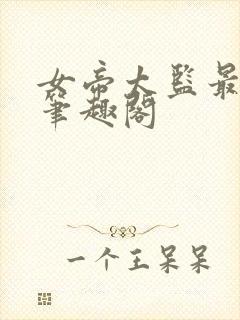 女帝大监最
筆趣阁
一个王呆呆